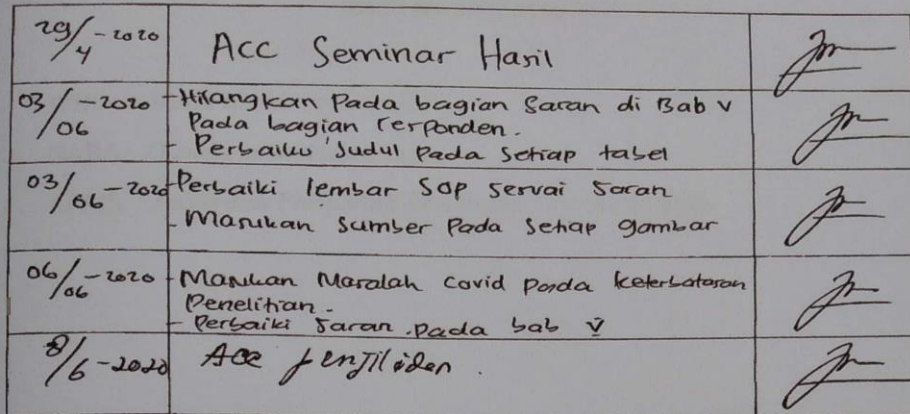 29/4-2020 Acc Seminar Hasil
03/06-2020 - Hilangkan Pada bagian Saran di Bab V
Pada bagian responden.
- Perbaiki Judul Pada Setiap tabel
03/06-2020 - Perbaiki lembar SOP sesuai Saran
- Masukan Sumber Pada Setiap gambar
06/06-2020 - Masukan Masalah Covid Pada keterbatasan
Penelitian.
- Perbaiki Saran Pada bab V
8/6-2020 Acc penjilidan.